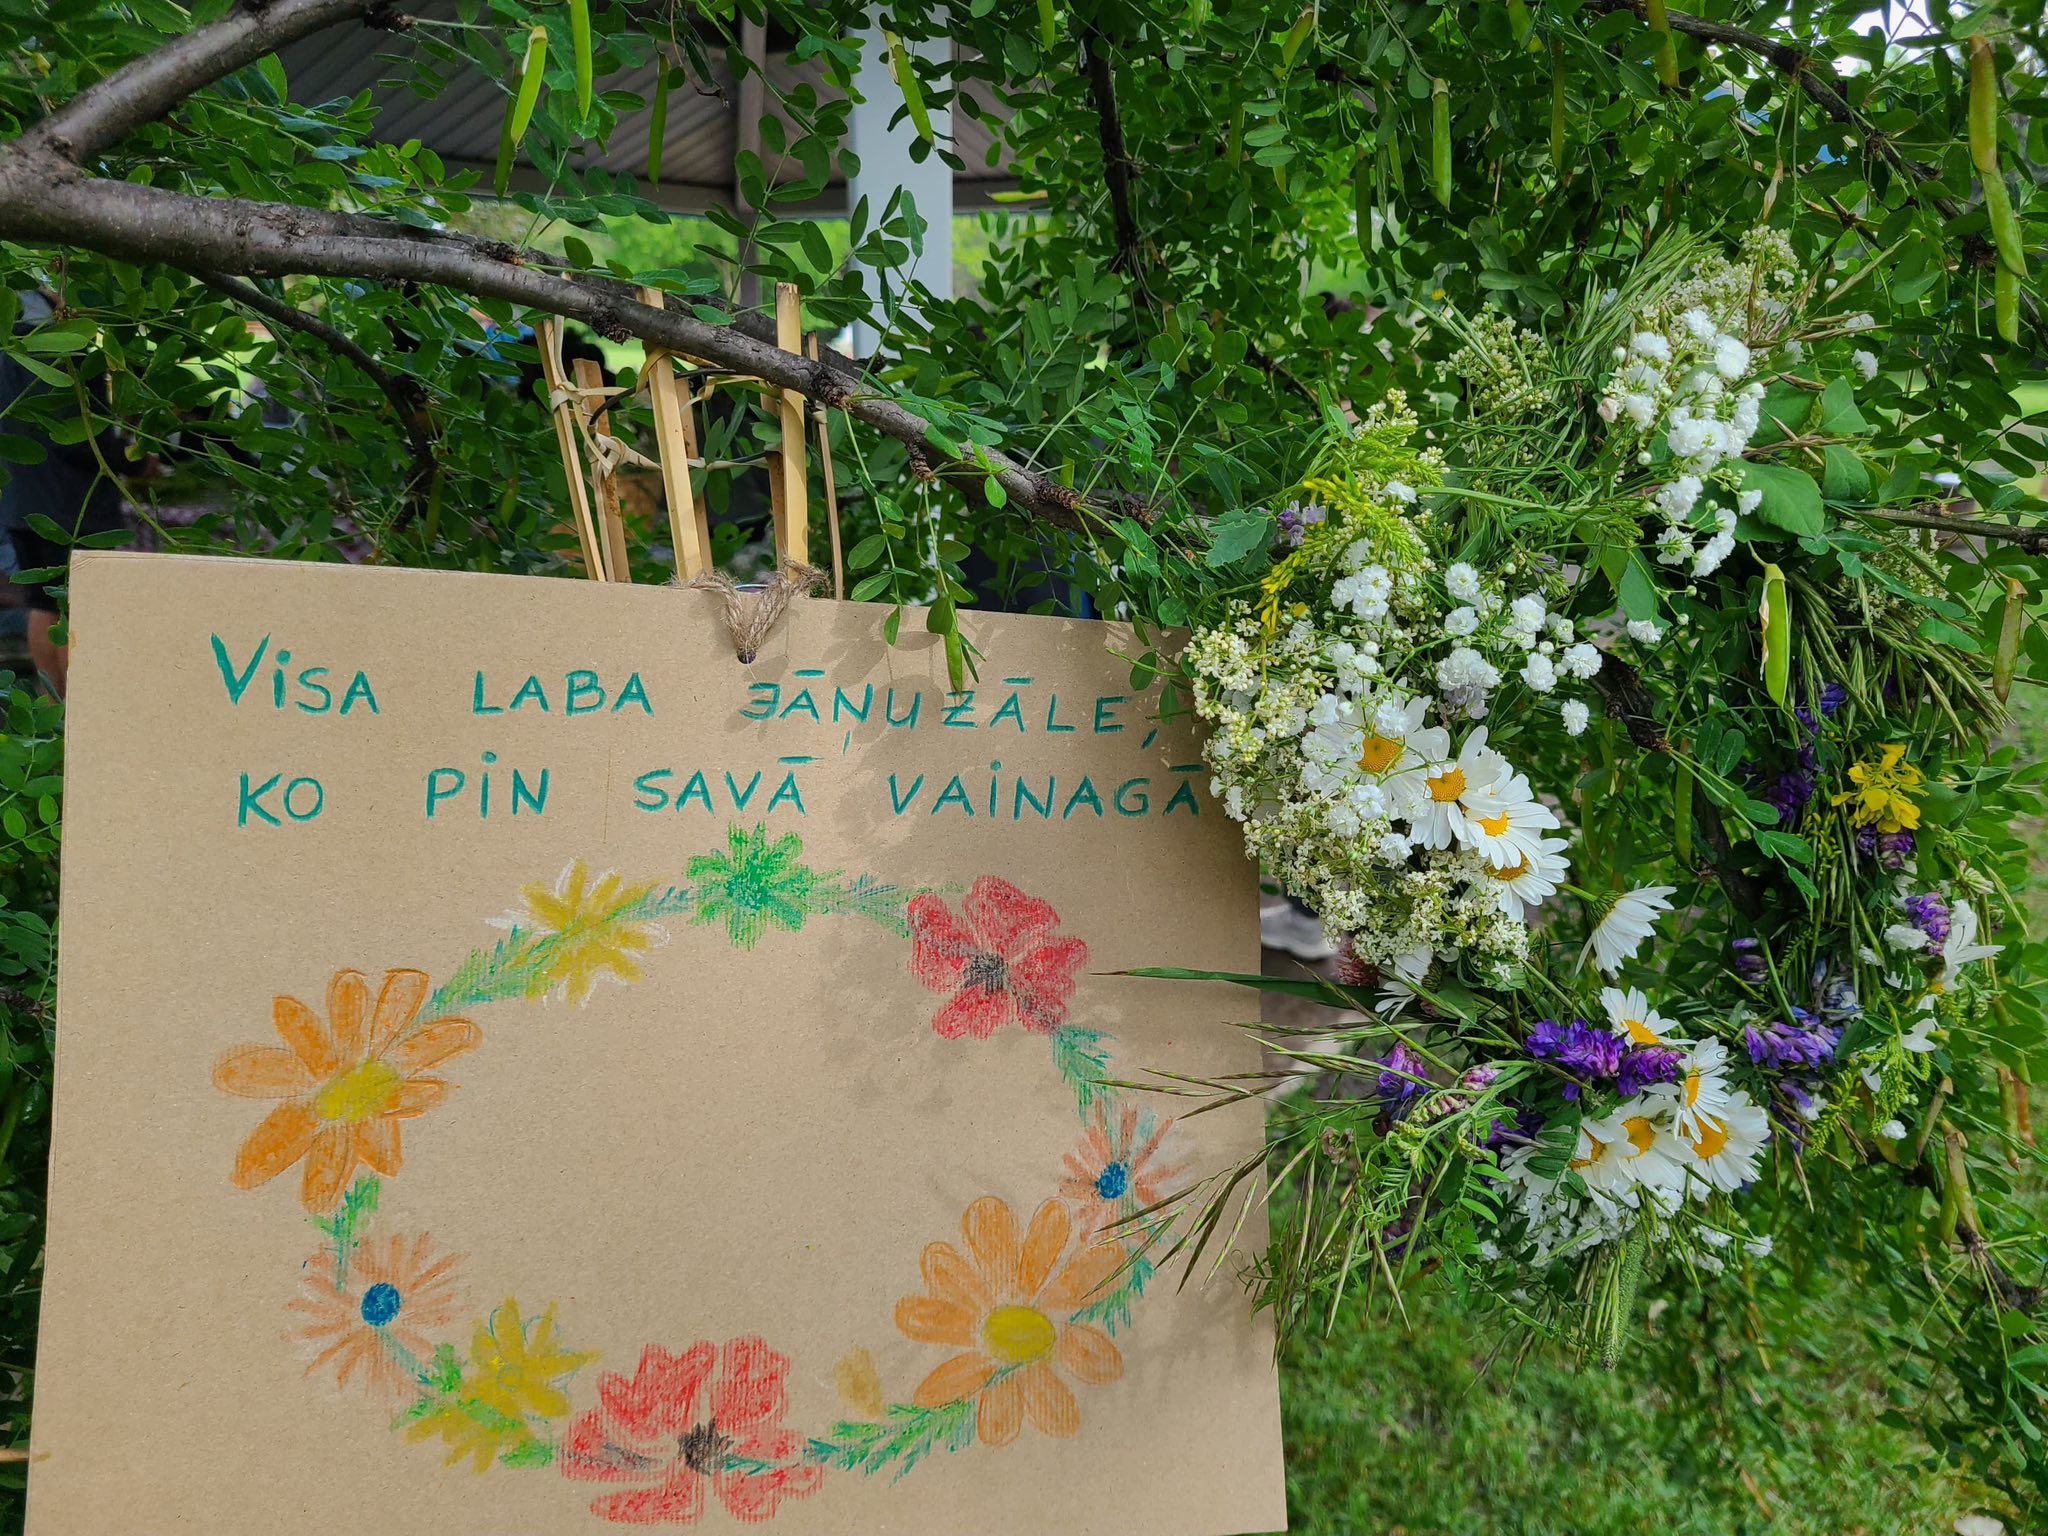 VISA LABA JĀŅUZĀLE,
KO PIN SAVĀ VAINAGĀ